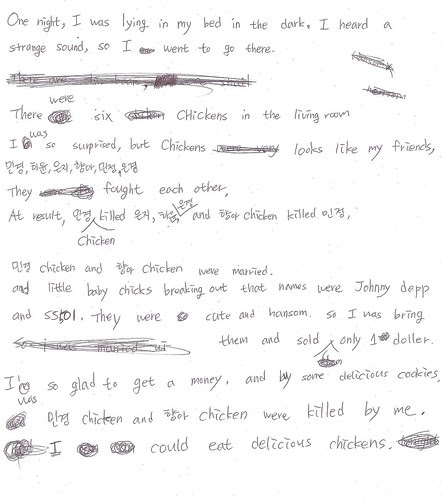 One night, I was lying in my bed in the dark. I heard a
strange sound, so I went to go there.
There were six Chickens in the living room
I was so surprised, but Chickens looks like my friends,
민경, 하윤, 은지, 항아, 민정, 은경
They fought each other,
At result, 민경 chicken killed 은지, 하윤, 은경 and 항아 chicken killed 민정,
민경 chicken and 항아 chicken were married.
and little baby chicks breaking out that names were Johnny depp
and SS501. They were cute and hansom. so I was bring
them and sold only 1 doller.
I was so glad to get a money. and buy some delicious cookies.
민경 chicken and 항아 chicken were killed by me.
I could eat delicious chickens.